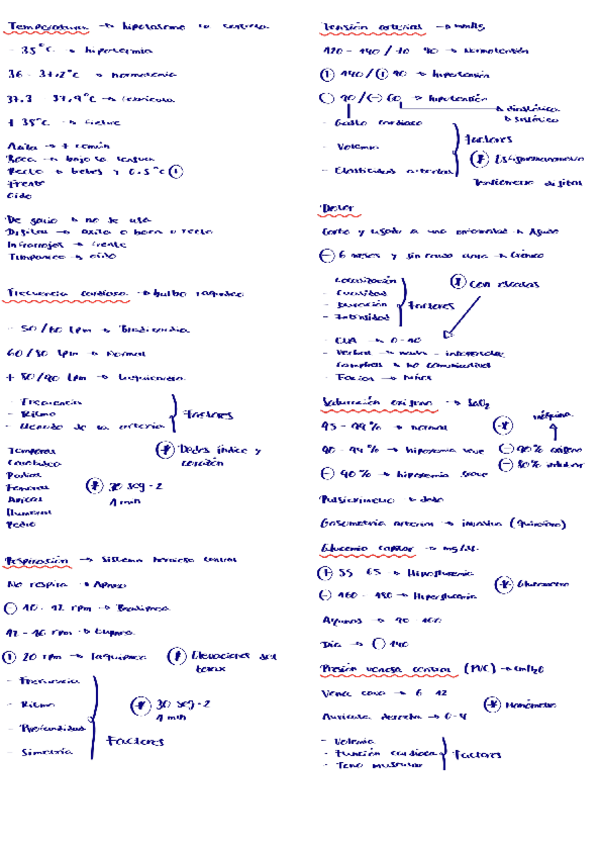 Temperatura → hipotalamo lo controla
- 35°C → hipotermia
36 - 37,2°C → normotermia
37.3 - 37,9°C → febrícula
+ 38°C → fiebre
Axila → + común
Boca → bajo la lengua
Recto → bebés y 0.5°C
Frente
Oído
De galio → no se usa
Digital → axila o boca o recto
Infrarrojos → frente
Timpanico → oído
Frecuencia cardiaca → bulbo raquideo
- 50/60 lpm → Bradicardia
60/80 lpm → Normal
+ 80/90 lpm → taquicardia
- Frecuencia
- Ritmo
- Llenado de la arteria
Factores
Temporal
Carotideo
Radial
Femoral
Apical
Humeral
Pedio
* Dedos índice y corazón
* 30 seg · 2
1 min
Respiración → Sistema nervioso central
No respira → Apnea
- 10 - 12 rpm → Bradipnea
12 - 16 rpm → Eupnea
20 rpm → Taquipnea
* Elevaciones del torax
- Frecuencia
- Ritmo
- Profundidad
- Simetría
Factores
* 30 seg · 2
1 min
Tensión arterial → mmHg
120 - 140 / 70 - 90 → Normotensión
140 / 90 → hipertensión
- 90 / - 60 → hipotensión
→ diastólica
→ sistólica
- Gasto cardiaco
- Volemia
- Elasticidad arterias
Factores
* Esfigmomanómetro
Tensiómetro digital
Dolor
Corto y ligado a una enfermedad → Agudo
- 6 meses y sin causa clara → Crónico
- Localización
- Cualidad
- Duración
- Intensidad
Factores
* con escalas
- EVA → 0 - 10
- Verbal → nada - insoportable
- Campbell → no comunicativos
- Facial → niños
Saturación oxígeno → SaO2
95 - 99% → normal
90 - 94% → hipoxemia leve
- 90% → hipoxemia grave
*
máquina
- 90% oxigeno
- 80% intubar
Pulsioximetro → dedo
Gasometría arterial → invasiva (quirófano)
Glucemia capilar → mg/dl
55 - 65 → Hipoglucemia
- 160 - 180 → Hiperglucemia
* Glucometro
Ayunas → 70 - 100
Día → 140
Presión venosa central (PVC) → cmH2O
Vena cava → 6 - 12
Aurícula derecha → 0 - 4
* Manómetro
- Volemia
- Función cardiaca
- Tono muscular
Factores